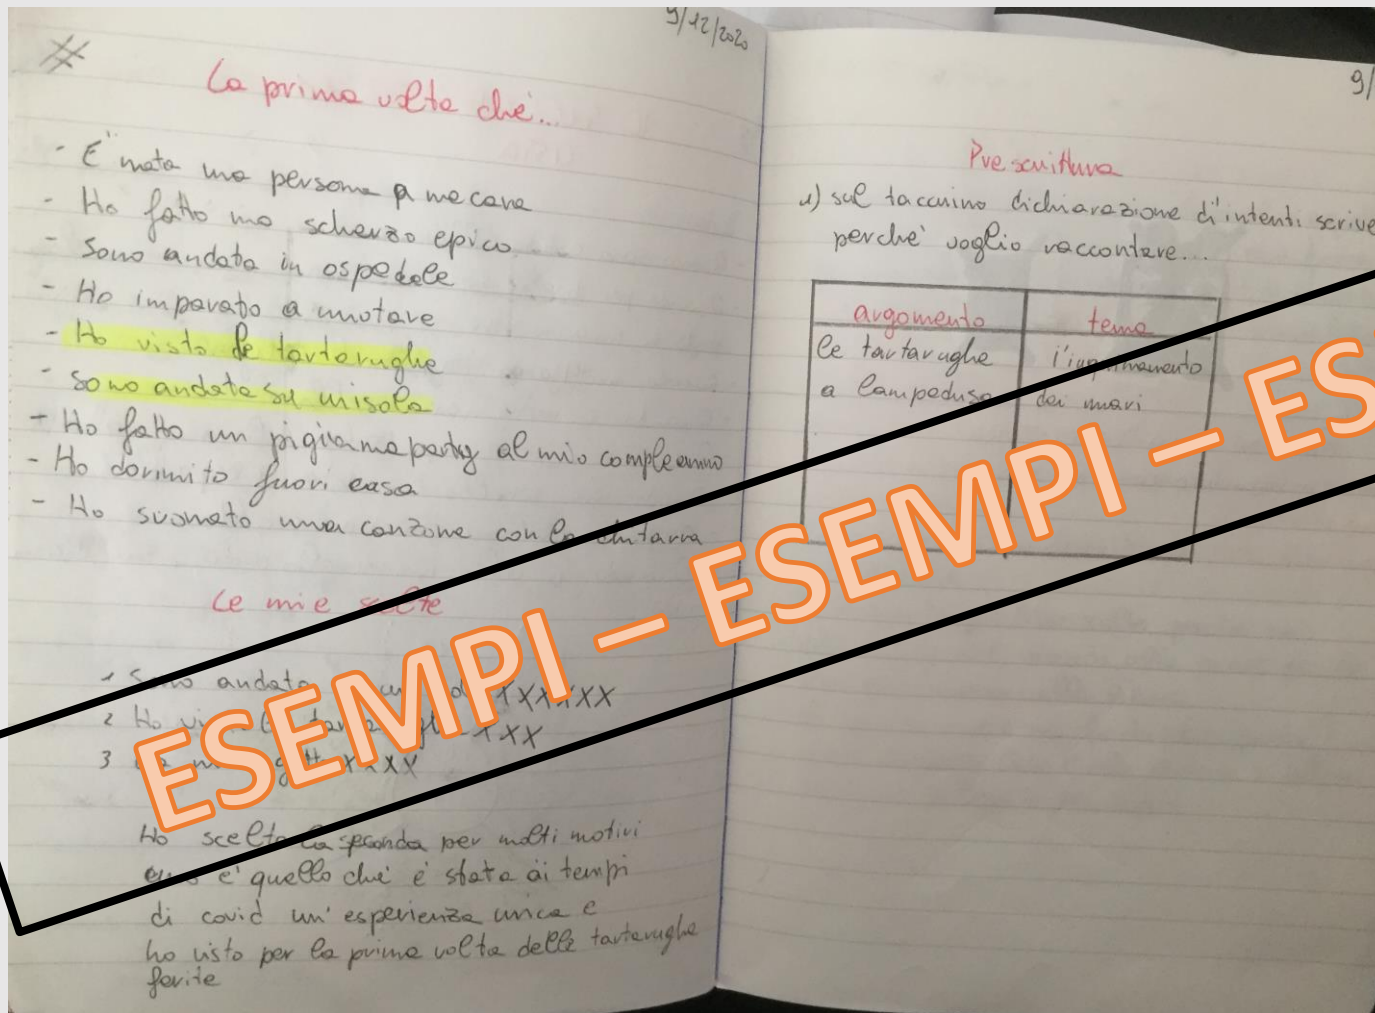 9/12/2020
La prima volta che...
- E' nata una persona a me cara
- Ho fatto uno scherzo epico
- Sono andata in ospedale
- Ho imparato a nuotare
- Ho visto le tartarughe
- Sono andata su un isola
- Ho fatto un pigiama party al mio compleanno
- Ho dormito fuori casa
- Ho suonato una canzone con la chitarra
Le mie scelte
1 Sono andata XXXXXX
2 Ho XXX
3 XXXX
Ho scelto la seconda per molti motivi
uno e' quello che è stata ai tempi
di covid un'esperienza unica e
ho visto per la prima volta delle tartarughe
ferite
9/
Prescrittura
1) sul taccuino dichiarazione d'intenti scrive
perche' voglio raccontare...
argomento tema
le tartarughe l'inquinamento
a lampedusa dei mari
ESEMPI – ESEMPI – ES